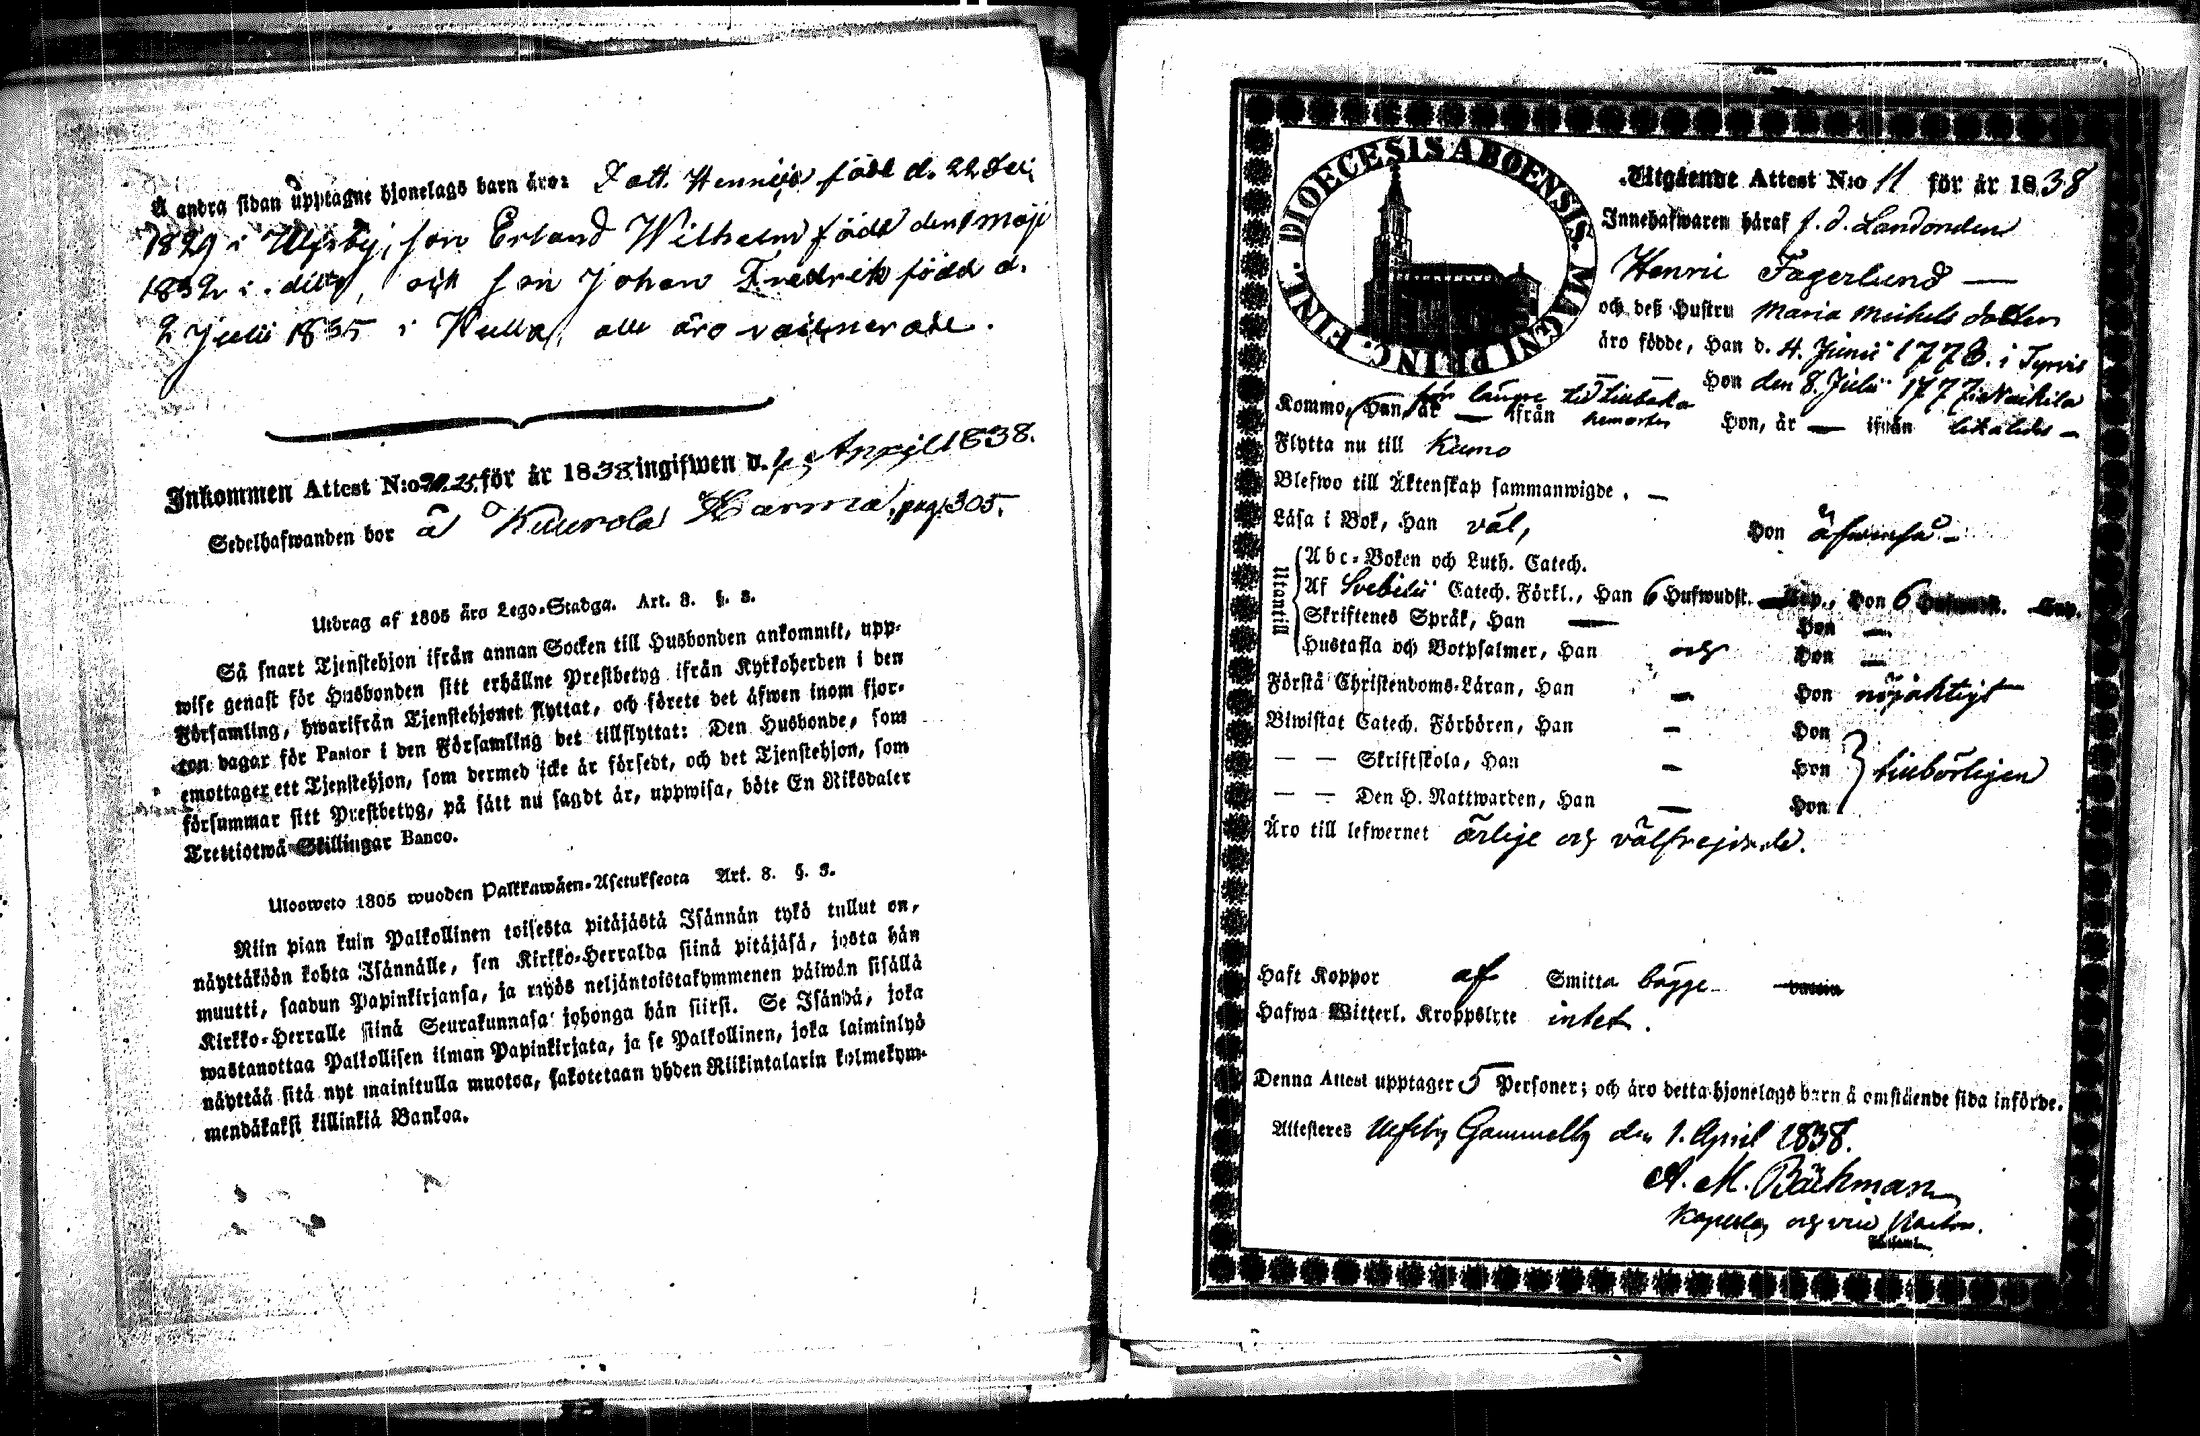 Å andra sidan upptagne hjonelags barn äro: Dott. född d. 22 Dec.
1829 i Ulfsby, son Erland Wilhelm född den 1 Maji
1832 i ditto, och son Johan Fredrik född d.
2 Julii 1835 i Kulla, alle äro vaccinerade.
Inkommen Attest N:o 25. för år 1838 ingifwen d. April 1838.
Sedelhafwanden bor å Kuurola Harma, pag. 305.
Utdrag af 1805 års Lego-Stadga. Art. 3. §. 3.
Så snart Tjenstehjon ifrån annan Socken till Husbonden ankommit, upp-
wise genast för Husbonden sitt erhållne Prestbetyg ifrån Kyrkoherden i den
Församling, hwarifrån Tjenstehjonet flyttat, och förete det äfwen inom fjor-
ton dagar för Pastor i den Församling det tillflyttat: Den Husbonde, som
emottager ett Tjenstehjon, som dermed icke är försedt, och det Tjenstehjon, som
försummar sitt Prestbetyg, på sätt nu sagdt är, uppwisa, böte En Riksdaler
Trettiotwå Skillingar Banco.
Ulosweto 1805 wuoden Palkkawäen-Asetuksesta Art. 3. §. 3.
Niin pian kuin Palkollinen toisesta pitäjästä Isännän tykö tullut on,
näyttäköön kohta Isännälle, sen Kirkko-Herralda siinä pitäjäsä, josta hän
muutti, saadun Papinkirjansa, ja myös neljäntoistakymmenen päiwän sisällä
Kirkko-Herralle siinä Seurakunnasa johonga hän siirsi. Se Isändä, joka
wastanottaa Palkollisen ilman Papinkirjata, ja se Palkollinen, joka laiminlyö
näyttää sitä nyt mainitulla muotoa, sakotetaan yhden Riikintalarin kolmekym-
mendäkaksi killinkiä Bankoa.
DIOECESIS ABOENSIS MAGNI PRINC. FINL.
Utgående Attest N:o 11 för år 1838
Innehafwaren häraf f. d. Landbonden
Henric Fagerlund —
och deß Hustru Maria Michelsdotter
äro födde, Han d. 4. Junii 1778. i Tyrvis
Hon den 8. Julii 1777 i
Kommo, Han, är — ifrån för längre tid tillbaka Hon, är — ifrån likaledes —
Flytta nu till Kumo
Blefwo till Äktenskap sammanwigde. —
Läsa i Bok, Han väl, Hon äfvenså —
Utantill
Abc-Boken och Luth. Catech.
Af Svebilii Catech. Förkl., Han 6 Hufwudst. Hon 6 Hufwudst.
Skriftenes Språk, Han — Hon —
Hustafla och Botpsalmer, Han och Hon —
Förstå Christendoms-Läran, Han — Hon nöjaktigt
Biwistat Catech. Förhören, Han — Hon
— — Skriftskola, Han — Hon tillbörligen
— — Den H. Nattwarden, Han — Hon
Äro till lefwernet ärlige och välfrejdade.
Haft Koppor af Smitta bägge
Hafwa Witterl. Kroppslyte intet.
Denna Attest upptager 5 Personer; och äro detta hjonelags barn å omstående sida införde.
Attesteres Ulfsby Gammelby den 1. April 1838.
A. M. Bäckman